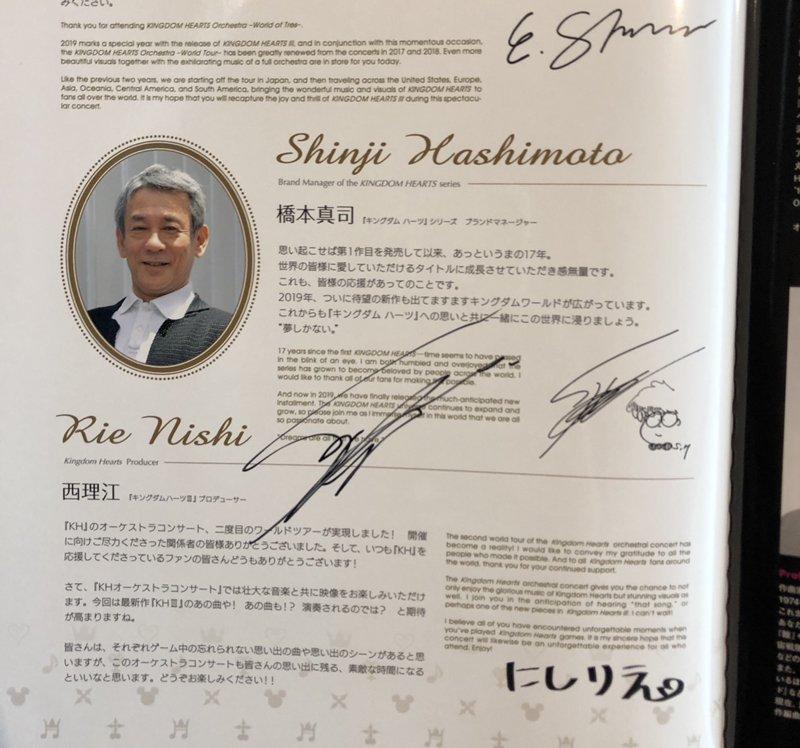 みください。
Thank you for attending KINGDOM HEARTS Orchestra -World of Tres-.
2019 marks a special year with the release of KINGDOM HEARTS III, and in conjunction with this momentous occasion,
the KINGDOM HEARTS Orchestra -World Tour- has been greatly renewed from the concerts in 2017 and 2018. Even more
beautiful visuals together with the exhilarating music of a full orchestra are in store for you today.
Like the previous two years, we are starting off the tour in Japan, and then traveling across the United States, Europe,
Asia, Oceania, Central America, and South America, bringing the wonderful music and visuals of KINGDOM HEARTS to
fans all over the world. It is my hope that you will recapture the joy and thrill of KINGDOM HEARTS III during this spectacu-
lar concert.
Shinji Hashimoto
Brand Manager of the KINGDOM HEARTS series
橋本真司 『キングダム ハーツ』シリーズ ブランドマネージャー
思い起こせば第1作目を発売して以来、あっというまの17年。
世界の皆様に愛していただけるタイトルに成長させていただき感無量です。
これも、皆様の応援があってのことです。
2019年、ついに待望の新作も出てますますキングダムワールドが広がっています。
これからも『キングダム ハーツ』への思いと共に一緒にこの世界に浸りましょう。
"夢しかない。"
17 years since the first KINGDOM HEARTS—time seems to have passed
in the blink of an eye. I am both humbled and overjoyed that the
series has grown to become beloved by people across the world. I
would like to thank all of our fans for making this possible.
And now in 2019, we have finally released the much-anticipated new
installment. The KINGDOM HEARTS universe continues to expand and
grow, so please join me as I immerse myself in this world that we are all
so passionate about.
"Dreams are all we have."
S.H
Rie Nishi
Kingdom Hearts Producer
西理江 『キングダムハーツIII』プロデューサー
『KH』のオーケストラコンサート、二度目のワールドツアーが実現しました！ 開催
に向けご尽力くださった関係者の皆様ありがとうございました。そして、いつも『KH』を
応援してくださっているファンの皆さんどうもありがとうございます！
さて、『KHオーケストラコンサート』では壮大な音楽と共に映像をお楽しみいただけ
ます。今回は最新作『KHIII』のあの曲や！ あの曲も！？ 演奏されるのでは？ と期待
が高まりますね。
皆さんは、それぞれゲーム中の忘れられない思い出の曲や思い出のシーンがあると思
いますが、このオーケストラコンサートも皆さんの思い出に残る、素敵な時間になる
といいなと思います。どうぞお楽しみください！！
The second world tour of the Kingdom Hearts orchestral concert has
become a reality! I would like to convey my gratitude to all the
people who made it possible. And to all Kingdom Hearts fans around
the world, thank you for your continued support.
The Kingdom Hearts orchestral concert gives you the chance to not
only enjoy the glorious music of Kingdom Hearts but stunning visuals as
well. I join you in the anticipation of hearing "that song," or
perhaps one of the new pieces in Kingdom Hearts III. I can't wait!
I believe all of you have encountered unforgettable moments when
you've played Kingdom Hearts games. It is my sincere hope that the
concert will likewise be an unforgettable experience for all who
attend. Enjoy!
にしりえ